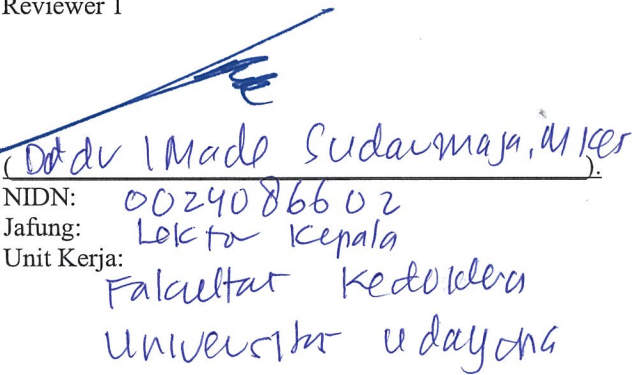 Reviewer 1
(Dr dr I Made Sudarmaja, M Kes).
NIDN: 0024086602
Jafung: Lektor Kepala
Unit Kerja:
Fakultas Kedokteran
Universitas Udayana